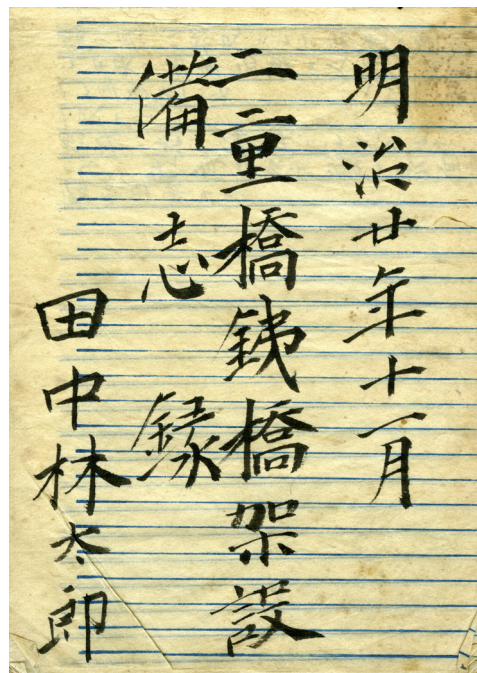 明治廿年十一月
二重橋銕橋架設
備志録
田中林太郎